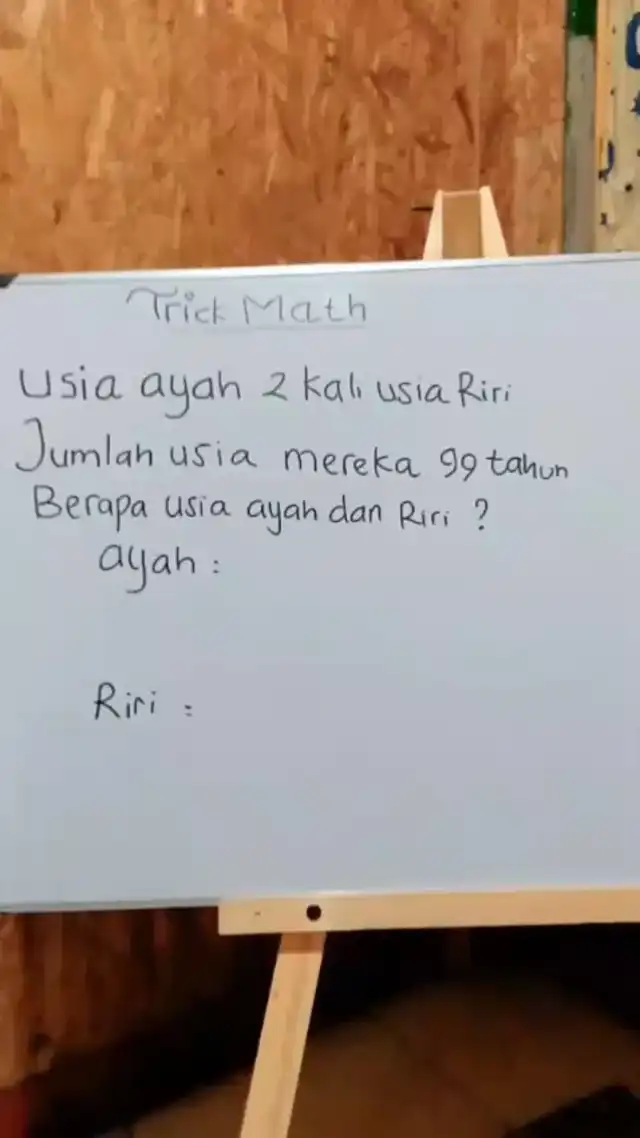 Trick Math
Usia ayah 2 kali usia Riri
Jumlah usia mereka 99 tahun
Berapa usia ayah dan Riri ?
ayah :
Riri :